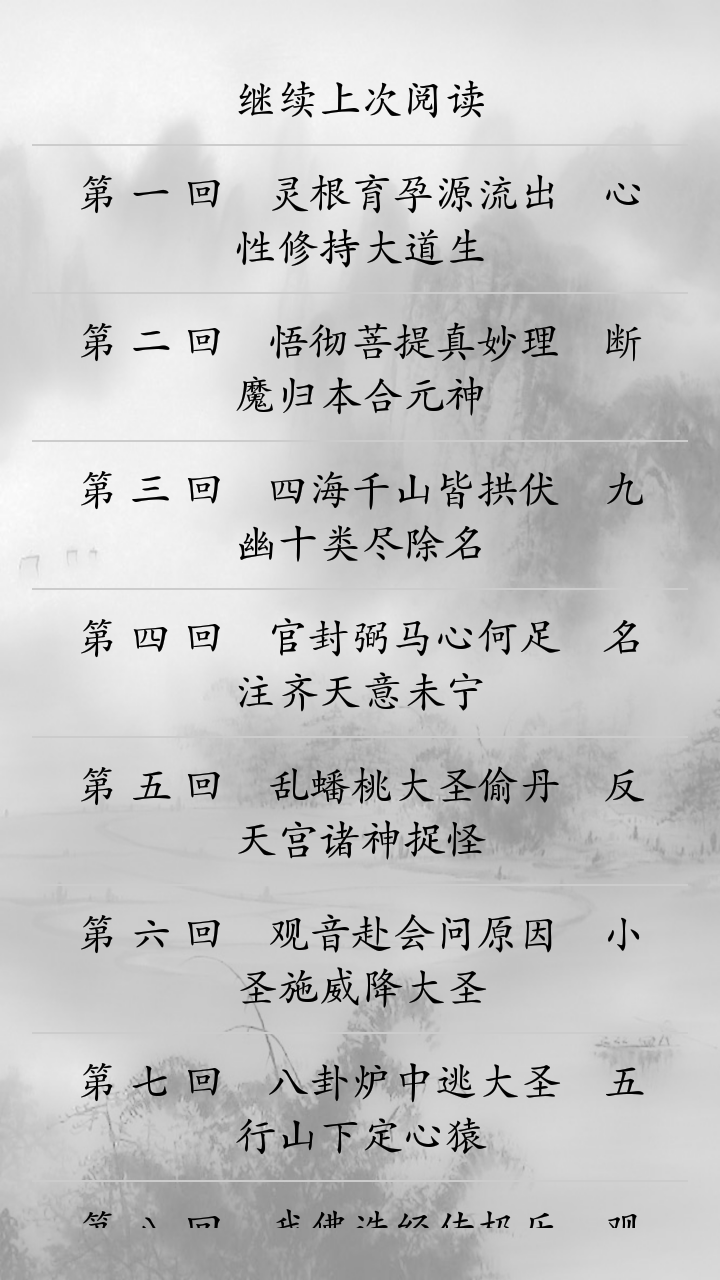 继续上次阅读
第一回 灵根育孕源流出 心
性修持大道生
第二回 悟彻菩提真妙理 断
魔归本合元神
第三回 四海千山皆拱伏 九
幽十类尽除名
第四回 官封弼马心何足 名
注齐天意未宁
第五回 乱蟠桃大圣偷丹 反
天宫诸神捉怪
第六回 观音赴会问原因 小
圣施威降大圣
第七回 八卦炉中逃大圣 五
行山下定心猿